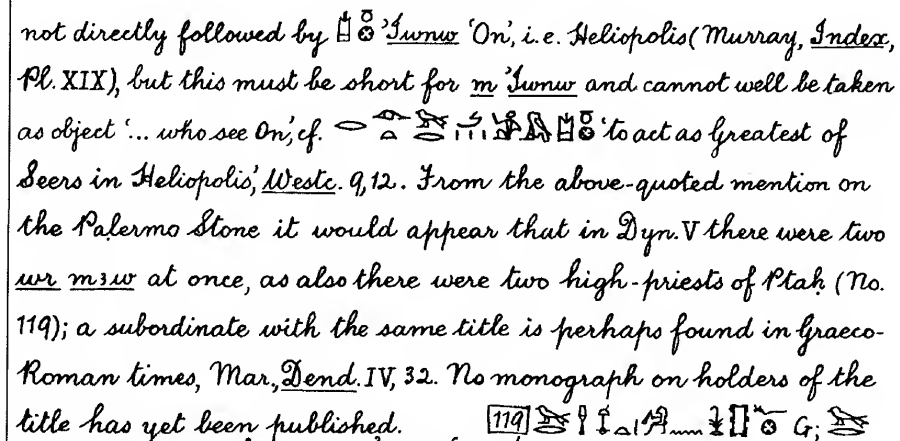 not directly followed by 'Iwnw 'On', i.e. Heliopolis (Murray, Index,
Pl. XIX), but this must be short for m 'Iwnw and cannot well be taken
as object '... who see On', cf. 'to act as Greatest of
Seers in Heliopolis', Westc. 9,12. From the above-quoted mention on
the Palermo Stone it would appear that in Dyn. V there were two
wr mꜣw at once, as also there were two high-priests of Ptaḥ (No.
119); a subordinate with the same title is perhaps found in Graeco-
Roman times, Mar., Dend. IV, 32. No monograph on holders of the
title has yet been published. 119 G;